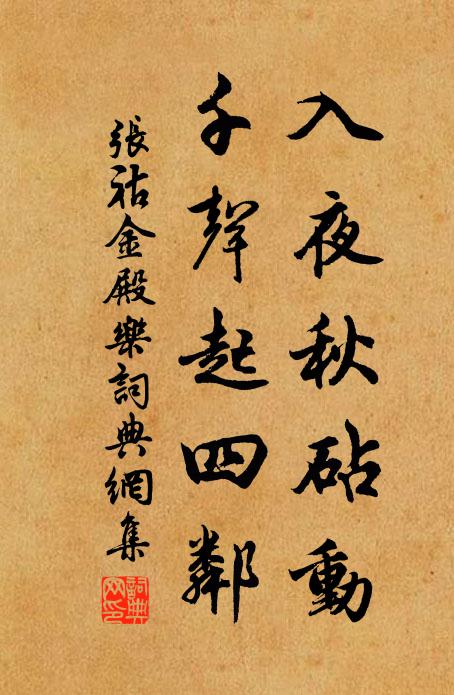 入夜秋砧動
千聲起四鄰
張祜金殿樂詞典網集
詞典网印